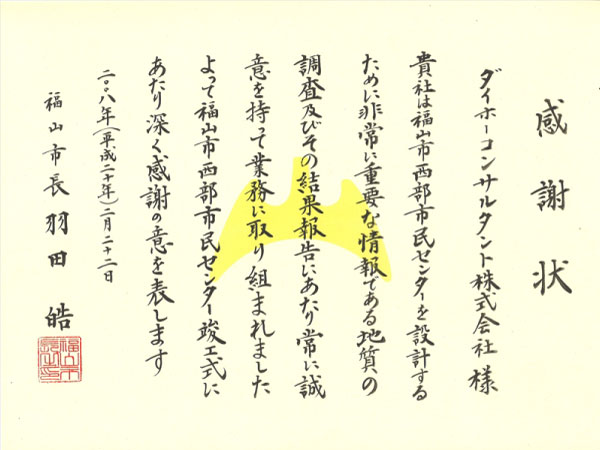 感謝状
ダイホーコンサルタント株式会社 様
貴社は福山市西部市民センターを設計する
ために非常に重要な情報である地質の
調査及びその結果報告にあたり常に誠
意を持って業務に取り組まれました
よって福山市西部市民センター竣工式に
あたり深く感謝の意を表します
二〇〇八年(平成二十年)二月二十二日
福山市長 羽田 皓